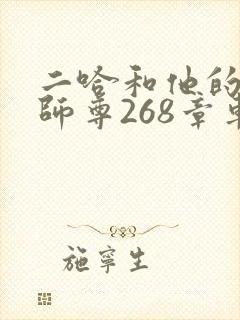 二哈和他的
師尊268章
施寧生